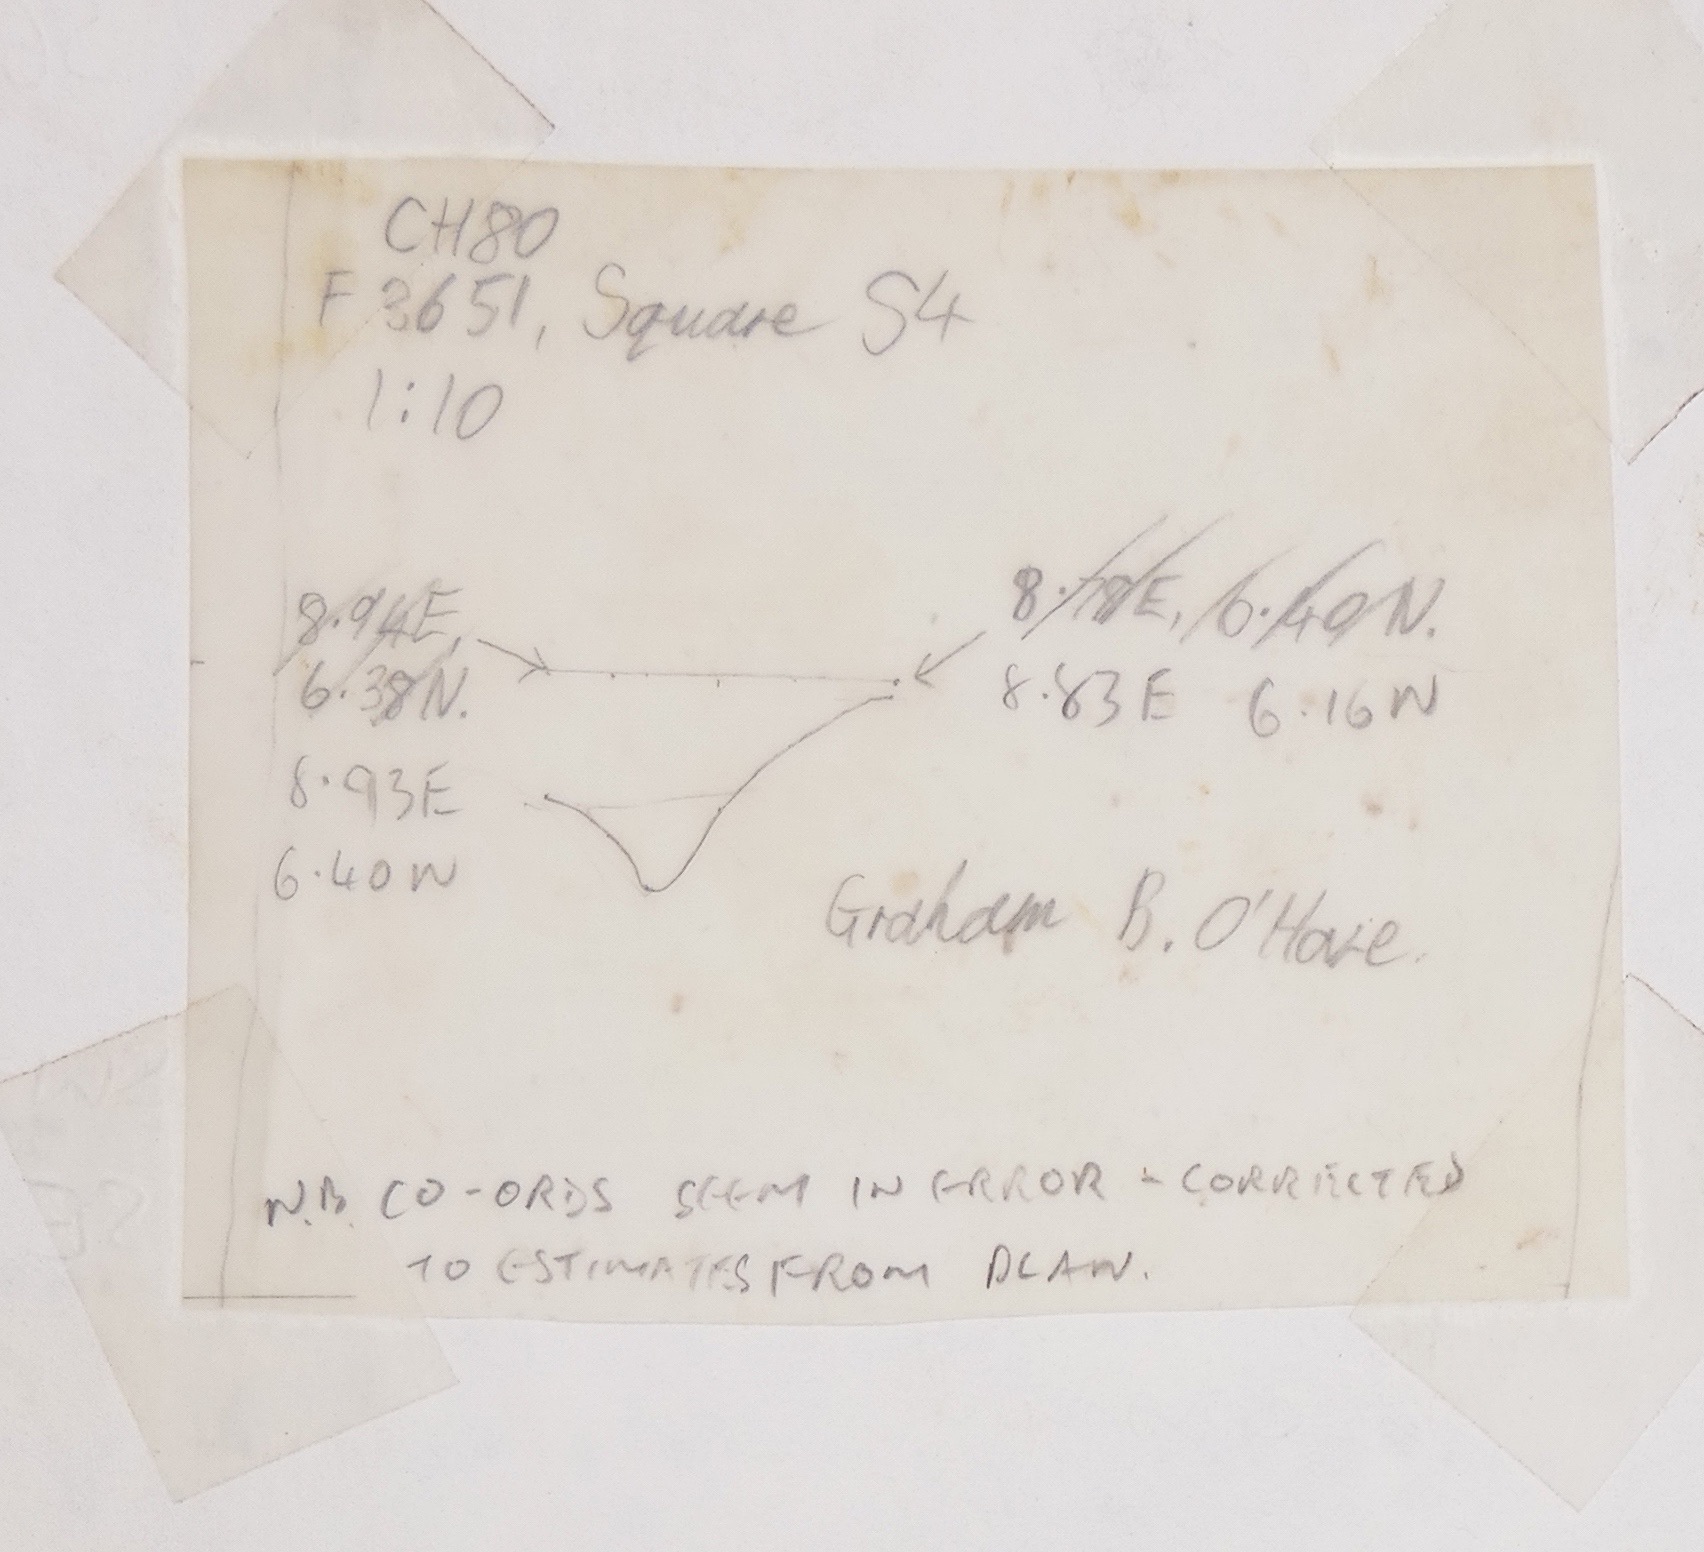 CH80
F 3651, Square S4
1:10
8.94E,
6.38N.
8.93E
6.40N
8.78E, 6.40N.
8.83E 6.16N
Graham B. O'Hare.
N.B. CO-ORDS SEEM IN ERROR - CORRECTED
TO ESTIMATES FROM PLAN.